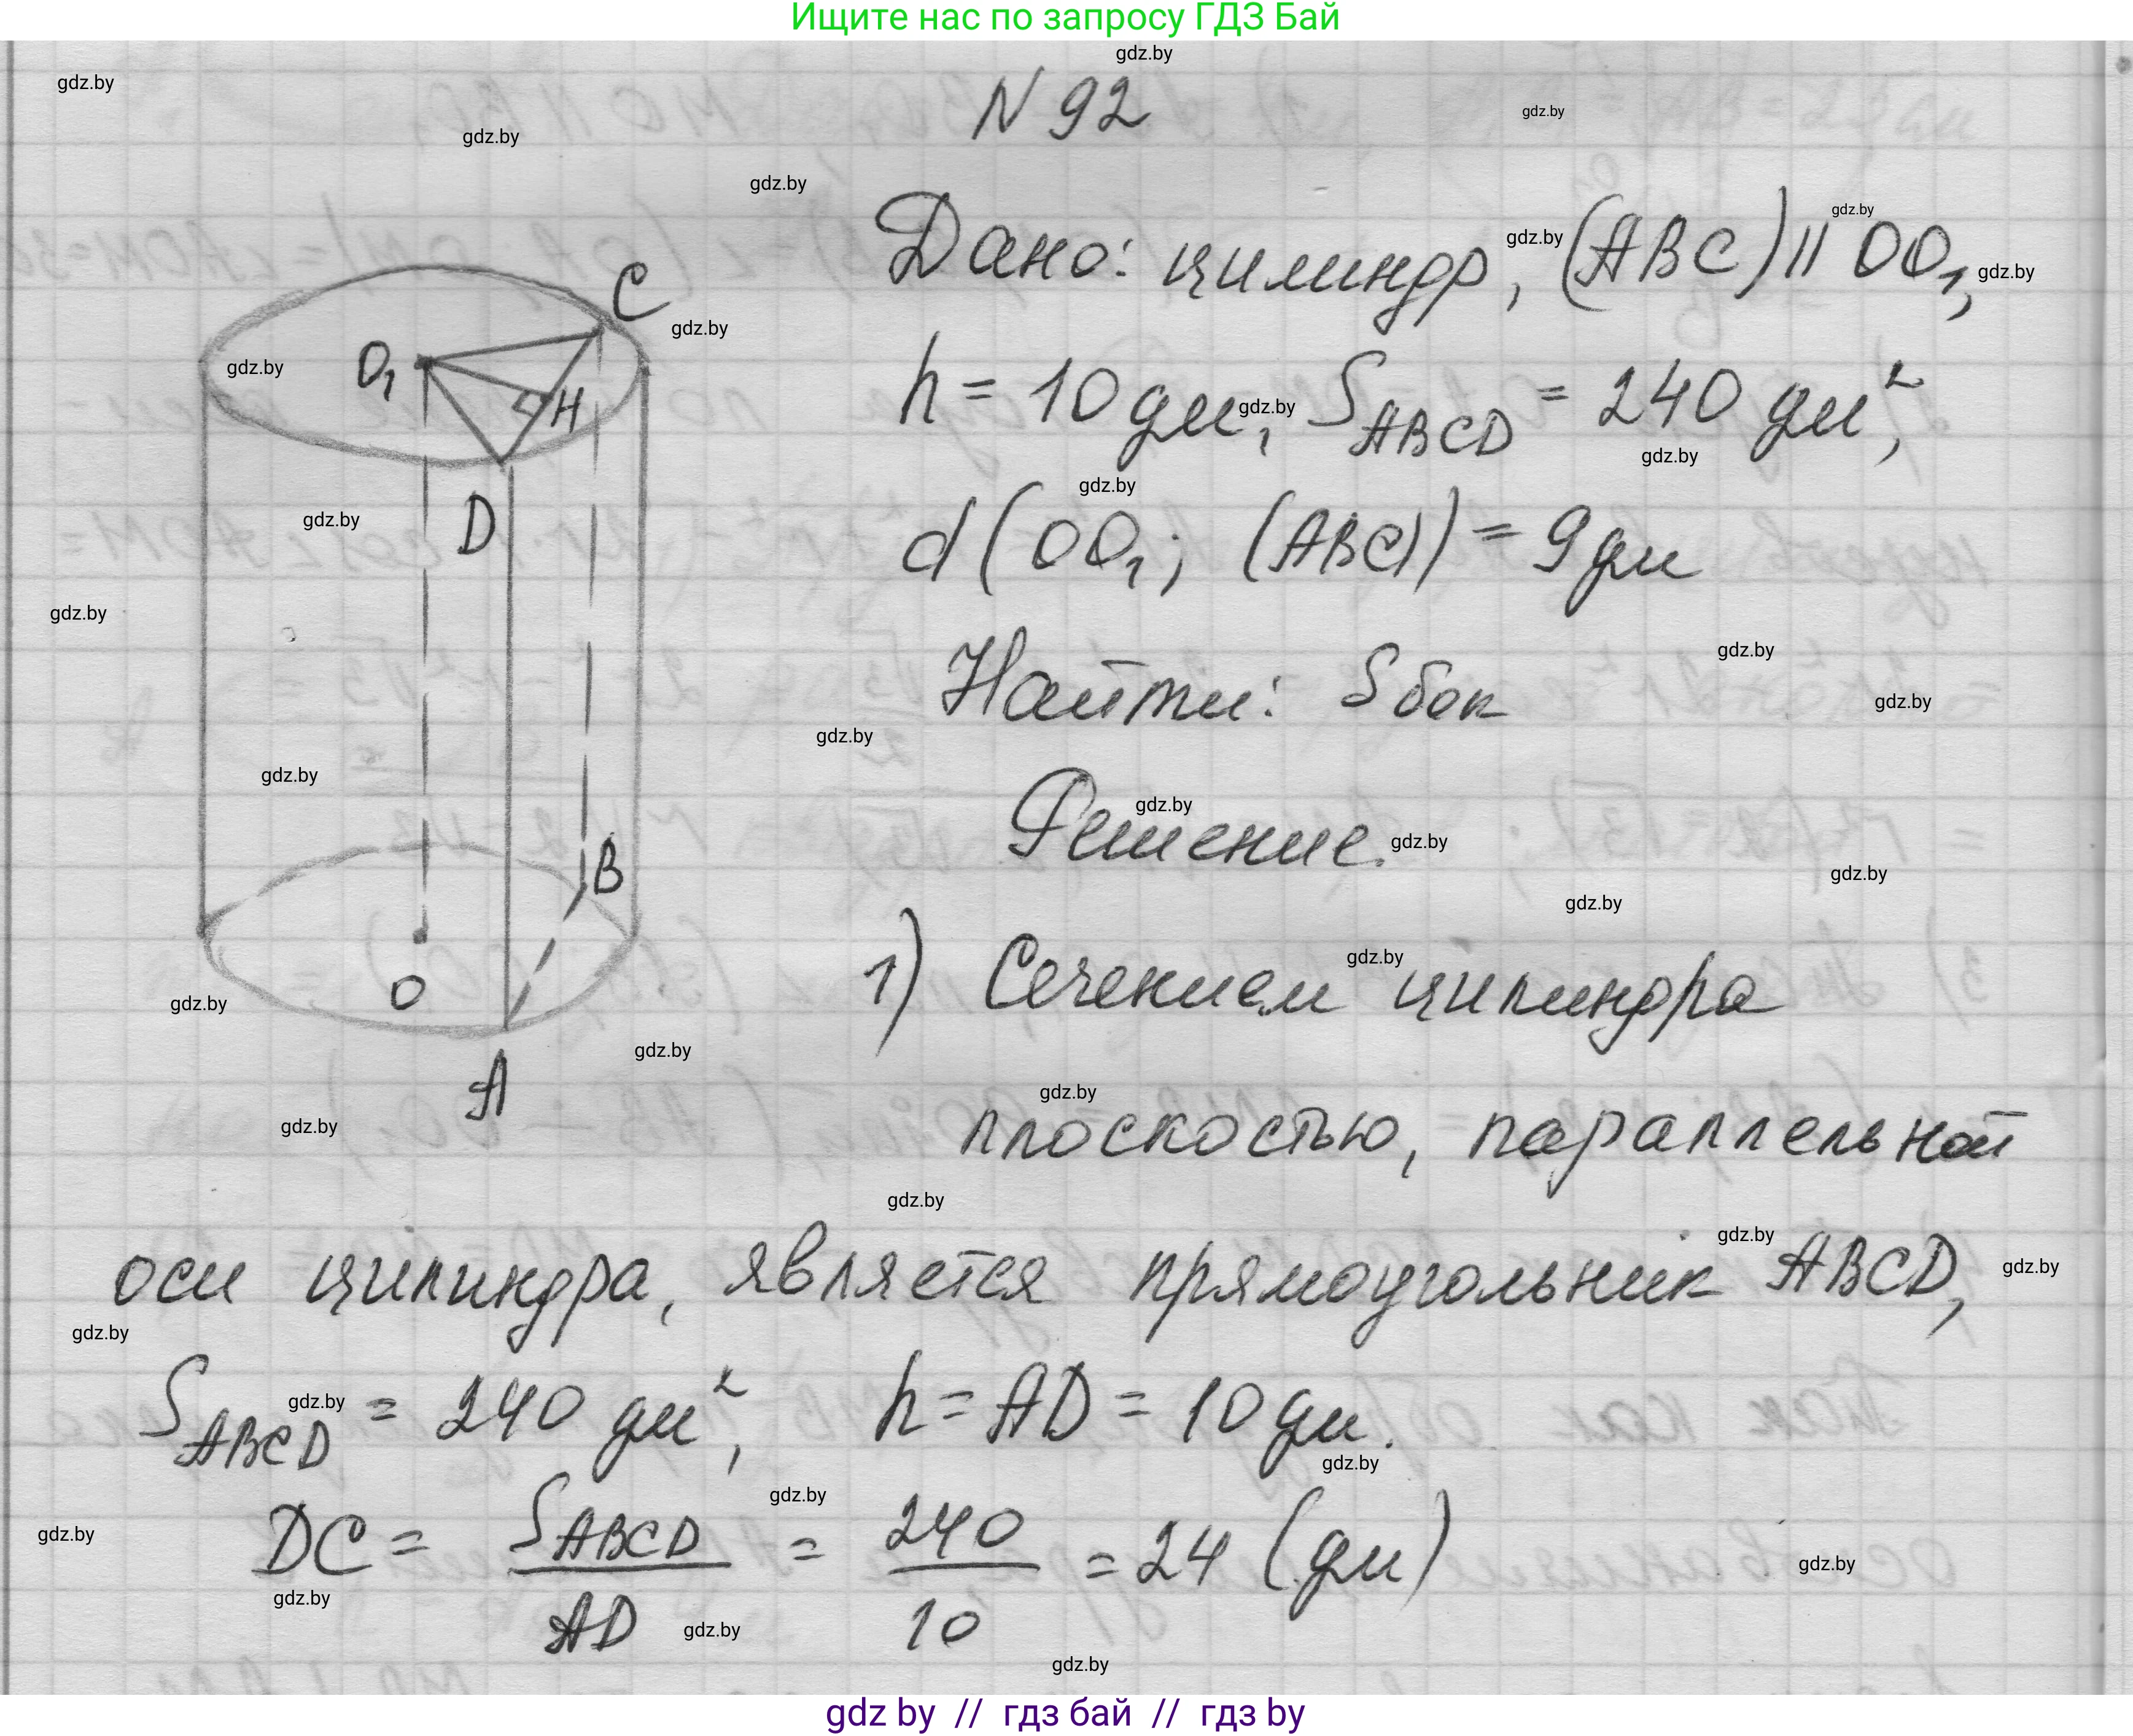 Ищите нас по запросу ГДЗ Бай
gdz.by
N 92
gdz.by
gdz.by
gdz.by
gdz.by
Дано: цилиндр, (ABC) || OO₁,
gdz.by
gdz.by
gdz.by
C
gdz.by
O₁
gdz.by
H
h = 10 дм, S_ABCD = 240 дм²,
gdz.by
gdz.by
gdz.by
gdz.by
D
d(OO₁; (ABC)) = 9 дм
gdz.by
Найти: S бок
gdz.by
gdz.by
gdz.by
gdz.by
Решение.
gdz.by
gdz.by
gdz.by
B
gdz.by
1) Сечением цилиндра
gdz.by
O
gdz.by
gdz.by
A
gdz.by
gdz.by
плоскостью, параллельной
gdz.by
gdz.by
gdz.by
оси цилиндра, является прямоугольник ABCD,
gdz.by
S_ABCD = 240 дм², h = AD = 10 дм.
gdz.by
gdz.by
gdz.by
gdz.by
DC = S_ABCD / AD = 240 / 10 = 24 (дм)
gdz.by
gdz.by
gdz.by
gdz.by
gdz by // гдз бай // гдз by